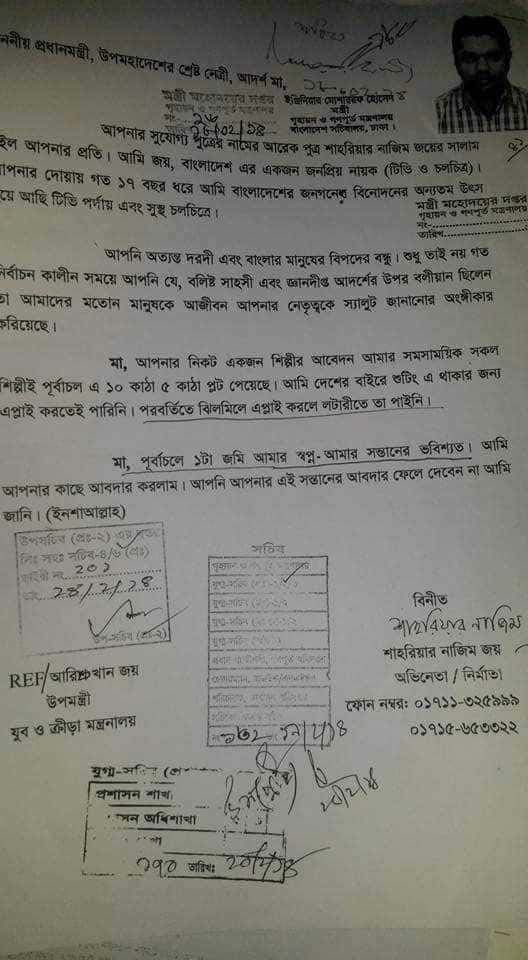 মাননীয় প্রধানমন্ত্রী, উপমহাদেশের শ্রেষ্ঠ নেত্রী, আদর্শ মা,
মন্ত্রী মহোদয়ের দপ্তর
গৃহায়ন ও গণপূর্ত মন্ত্রনালয়
নং- ২৬
তারিখ ২৮/০২/১৪
ইঞ্জিনিয়ার মোশাররফ হোসেন
মন্ত্রী
গৃহায়ন ও গণপূর্ত মন্ত্রনালয়
বাংলাদেশ সচিবালয়, ঢাকা।
আপনার সুযোগ্য পুত্রের নামের আরেক পুত্র শাহরিয়ার নাজিম জয়ের সালাম
রইল আপনার প্রতি। আমি জয়, বাংলাদেশ এর একজন জনপ্রিয় নায়ক (টিভি ও চলচিত্র)।
আপনার দোয়ায় গত ১৭ বছর ধরে আমি বাংলাদেশের জনগনের বিনোদনের অন্যতম উৎস
হয়ে আছি টিভি পর্দায় এবং সুস্থ চলচিত্রে।
মন্ত্রী মহোদয়ের দপ্তর
গৃহায়ন ও গণপূর্ত মন্ত্রনালয়
নং-
তারিখ
আপনি অত্যন্ত দরদী এবং বাংলার মানুষের বিপদের বন্ধু। শুধু তাই নয় গত
নির্বাচন কালীন সময়ে আপনি যে, বলিষ্ট সাহসী এবং জ্ঞানদীপ্ত আদর্শের উপর বলীয়ান ছিলেন
তা আমাদের মতোন মানুষকে আজীবন আপনার নেতৃত্বকে স্যালুট জানানোর অংঙ্গীকার
করিয়েছে।
মা, আপনার নিকট একজন শিল্পীর আবেদন আমার সমসাময়িক সকল
শিল্পীই পূর্বাচল এ ১০ কাঠা ৫ কাঠা প্লট পেয়েছে। আমি দেশের বাইরে শুটিং এ থাকার জন্য
এপ্লাই করতেই পারিনি। পরবর্তিতে ঝিলমিলে এপ্লাই করলে লটারীতে তা পাইনি।
মা, পূর্বাচলে ১টা জমি আমার স্বপ্ন-আমার সন্তানের ভবিষ্যত। আমি
আপনার কাছে আবদার করলাম। আপনি আপনার এই সন্তানের আবদার ফেলে দেবেন না আমি
জানি। (ইনশাআল্লাহ)
উপসচিব (প্রঃ-২) এর দপ্তর
সিঃ সহঃ সচিব-৪/৬ (প্রঃ)
ডাইরী নং ২০১
উপ-সচিব (প্রঃ-২)
সচিব
বিনীত
শাহরিয়ার নাজিম
শাহরিয়ার নাজিম জয়
অভিনেতা / নির্মাতা
ফোন নম্বর: ০১৭১১-৩২৫৯৯৯
০১৭১৫-৬৫৩৩২২
REF/আরিফ খান জয়
উপমন্ত্রী
যুব ও ক্রীড়া মন্ত্রনালয়
যুগ্ম-সচিব
প্রশাসন শাখা
অধিশাখা
তারিখঃ